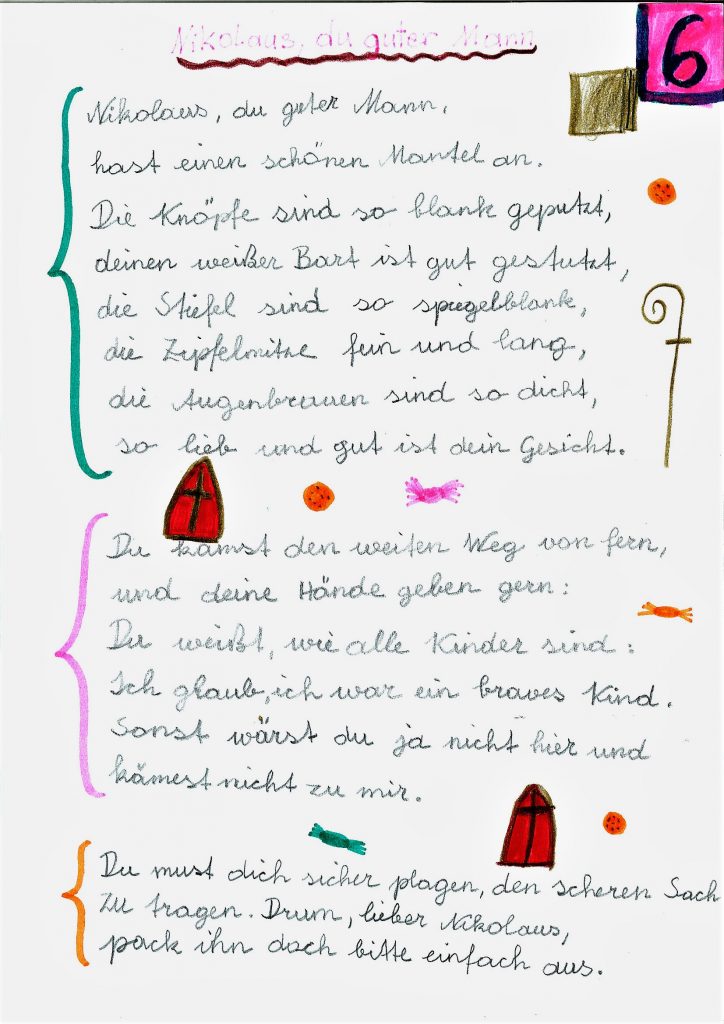 Nikolaus, du guter Mann
6
Nikolaus, du guter Mann,
hast einen schönen Mantel an.
Die Knöpfe sind so blank geputzt,
deinen weißer Bart ist gut gestutzt,
die Stiefel sind so spiegelblank,
die Zipfelmitze fein und lang,
die Augenbrauen sind so dicht,
so lieb und gut ist dein Gesicht.
Du kamst den weiten Weg von fern,
und deine Hände geben gern:
Du weißt, wie alle Kinder sind:
Ich glaub, ich war ein braves Kind.
Sonst wärst du ja nicht hier und
kämest nicht zu mir.
Du must dich sicher plagen, den scheren Sach
zu tragen. Drum, lieber Nikolaus,
pack ihn doch bitte einfach aus.